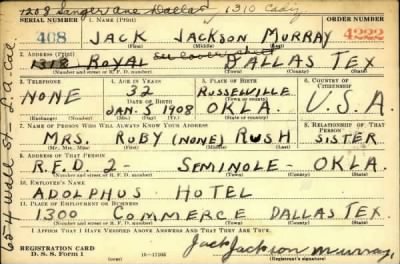 1208 Sanger Ave Dallas 1310 Cadiz
SERIAL NUMBER 1. NAME (Print) ORDER NUMBER
408 JACK JACKSON MURRAY 4222
(First) (Middle) (Last)
2. ADDRESS (Print)
1318 ROYAL DALLAS TEX
(Number and street or R. F. D. number) (Town) (County) (State)
3. TELEPHONE 4. AGE IN YEARS 5. PLACE OF BIRTH 6. COUNTRY OF CITIZENSHIP
NONE 32 RUSSELVILLE U.S.A
DATE OF BIRTH
JAN. 5 1908 OKLA.
(Mo.) (Day) (Yr.) (State or country)
7. NAME OF PERSON WHO WILL ALWAYS KNOW YOUR ADDRESS 8. RELATIONSHIP OF THAT PERSON
MRS. RUBY (NONE) RUSH SISTER
(Mr., Mrs., Miss) (First) (Middle) (Last)
9. ADDRESS OF THAT PERSON
R.F.D. 2- SEMINOLE- OKLA.
(Number and street or R. F. D. number) (Town) (County) (State)
10. EMPLOYER'S NAME
ADOLPHUS HOTEL
11. PLACE OF EMPLOYMENT OR BUSINESS
1300 COMMERCE DALLAS TEX.
(Number and street or R. F. D. number) (Town) (County) (State)
I AFFIRM THAT I HAVE VERIFIED ABOVE ANSWERS AND THAT THEY ARE TRUE.
REGISTRATION CARD
D. S. S. Form 1 16-17105
Jack Jackson Murray
(Registrant's signature)
654 Wall St- L.A-Cal